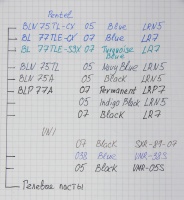 Pentel
BLN 75TL-CX 05 Blue LRN5
BL 77TLE-CX 07 Blue LR7
BL 77TLE-S3X 07 Turquoise Blue LR7
BLN 75TL 05 Navy Blue LRN5
BLN 75A 05 Black LRN5
BLP 77A 07 Permanent LRP7
05 Indigo Black LRN5
07 Black LR7
UNI
07 Black SXR-89-07
038 Blue UMR-38S
05 Black UMR-05S
Гелевые пасты